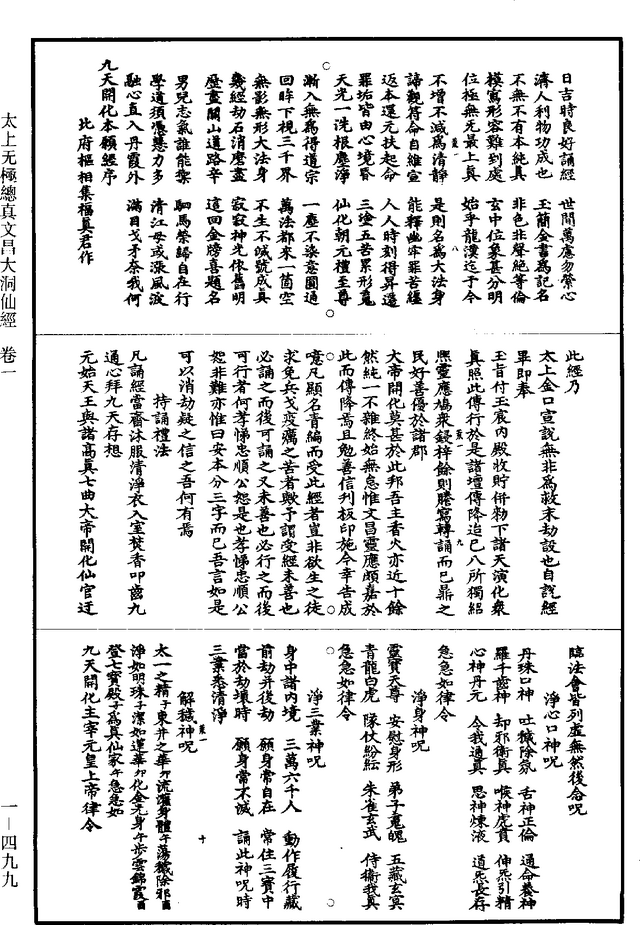 日吉時良好誦經　世間萬慮勿縈心
濟人利物功成也　玉簡金書篆記名
不無不有本純真　非色非聲絕等倫
模寫形容難到處　玄中位象甚分明
位極無先最上真　始乎龍漢迄于今
不增不減為清靜　是則名為大法身
諦觀符命自維宣　能釋幽牢罪苦經
返本還元扶起命　人人時刻得昇遷
罪垢皆由心境昏　三塗五苦累形魂
天光一洗根塵淨　仙化朝元禮至尊
漸入無為得道宗　一塵不染意圓通
回眸下視三千界　萬法都來一箇空
無影無形大法身　不生不滅號成真
幾經劫石消磨盡　寂寂神光依舊明
歷盡關山道路辛　這回金牓喜題名
男兒志氣誰能禦　駟馬榮歸自在行
學道須憑慧力多　清江毋或漲風波
融心直入丹霞外　滿目戈矛奈我何
九天開化本願經序
此府樞相集福真君作
此經乃
太上金口宣說無非為救末劫設也自說經
畢即奉
玉旨付玉宸內殿收貯併勑下諸天演化衆
真照此傳行於是諸壇傳降迨已八所獨紹
熈靈應鳩衆鋟梓餘則謄寫轉誦而已鼎之
民好善優於諸郡
大帝開化莫甚於此邦吾主香火亦近十餘
然純一不雜終始無怠惟文昌靈應頗嘉於
此而傳降焉且勉善信刋板印施今幸告成
噫凡顯名青編而受此經者豈非欲生之徒
求免兵戈疫癘之苦者歟予謂受經未善也
必誦之而後可誦之又未善也必行之而後
可行者何孝悌忠順公恕是也孝悌忠順公
恕非難亦惟曰安本分三字而已吾言如是
可以消劫疑之信之吾何有焉
持誦禮法
凡誦經當齋沐服清淨衣入室焚香叩齒九
通心拜九天存想
元始天王與諸高真七曲大帝開化仙官迂
臨法會皆列虛無然後念呪
淨心口神呪
丹珠口神　吐穢除氛　舌神正倫　通命養神
羅千齒神　却邪衛真　喉神虎賁　伸炁引精
心神丹元　令我通真　思神煉液　道炁長存
急急如律令
淨身神呪
靈寶天尊　安慰身形　弟子魂魄　五藏玄冥
青龍白虎　隊仗紛紜　朱雀玄武　侍衞我真
急急如律令
淨三業神呪
身中諸內境　三萬六千人　動作履行藏
前劫并後劫　願身常自在　常住三寶中
當於劫壞時　願身常不滅　誦此神呪時
三業悉清淨
解穢神呪
太一之精子東井之華卯流灌身體午蕩穢除邪酉
淨如明珠子潔如蓮華卯化金元身午步雲錦霞酉
登七寶殿子為真仙家午急急如
九天開化主宰元皇上帝律令
太上无極總真文昌大洞仙經　卷一
一—四九九